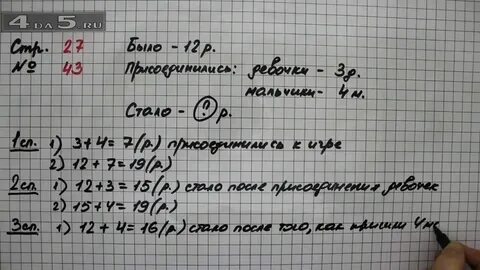 4DA5.RU
Стр. 27 Было - 12 р.
№ 43 Присоединились: девочки - 3 д.
мальчики - 4 м.
Стало - ? р.
1 сп. 1) 3+4=7(р.) присоединились к игре
2) 12+7=19(р.)
2 сп. 1) 12+3=15(р.) стало после присоединения девочек
2) 15+4=19(р.)
3 сп. 1) 12+4=16(р.) стало после того, как пришли 4 м